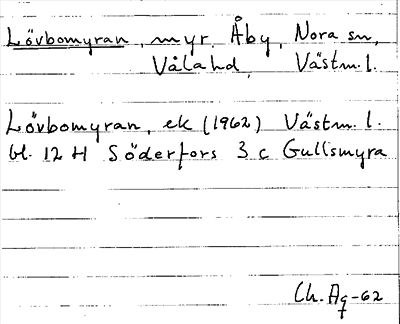 Lövbomyran, myr, Åby, Nora sn,
Våla hd, Västm. l.
Lövbomyran, ek (1962) Västm. l.
bl. 12 H Söderfors 3 c Gullsmyra
Ch. Ag-62